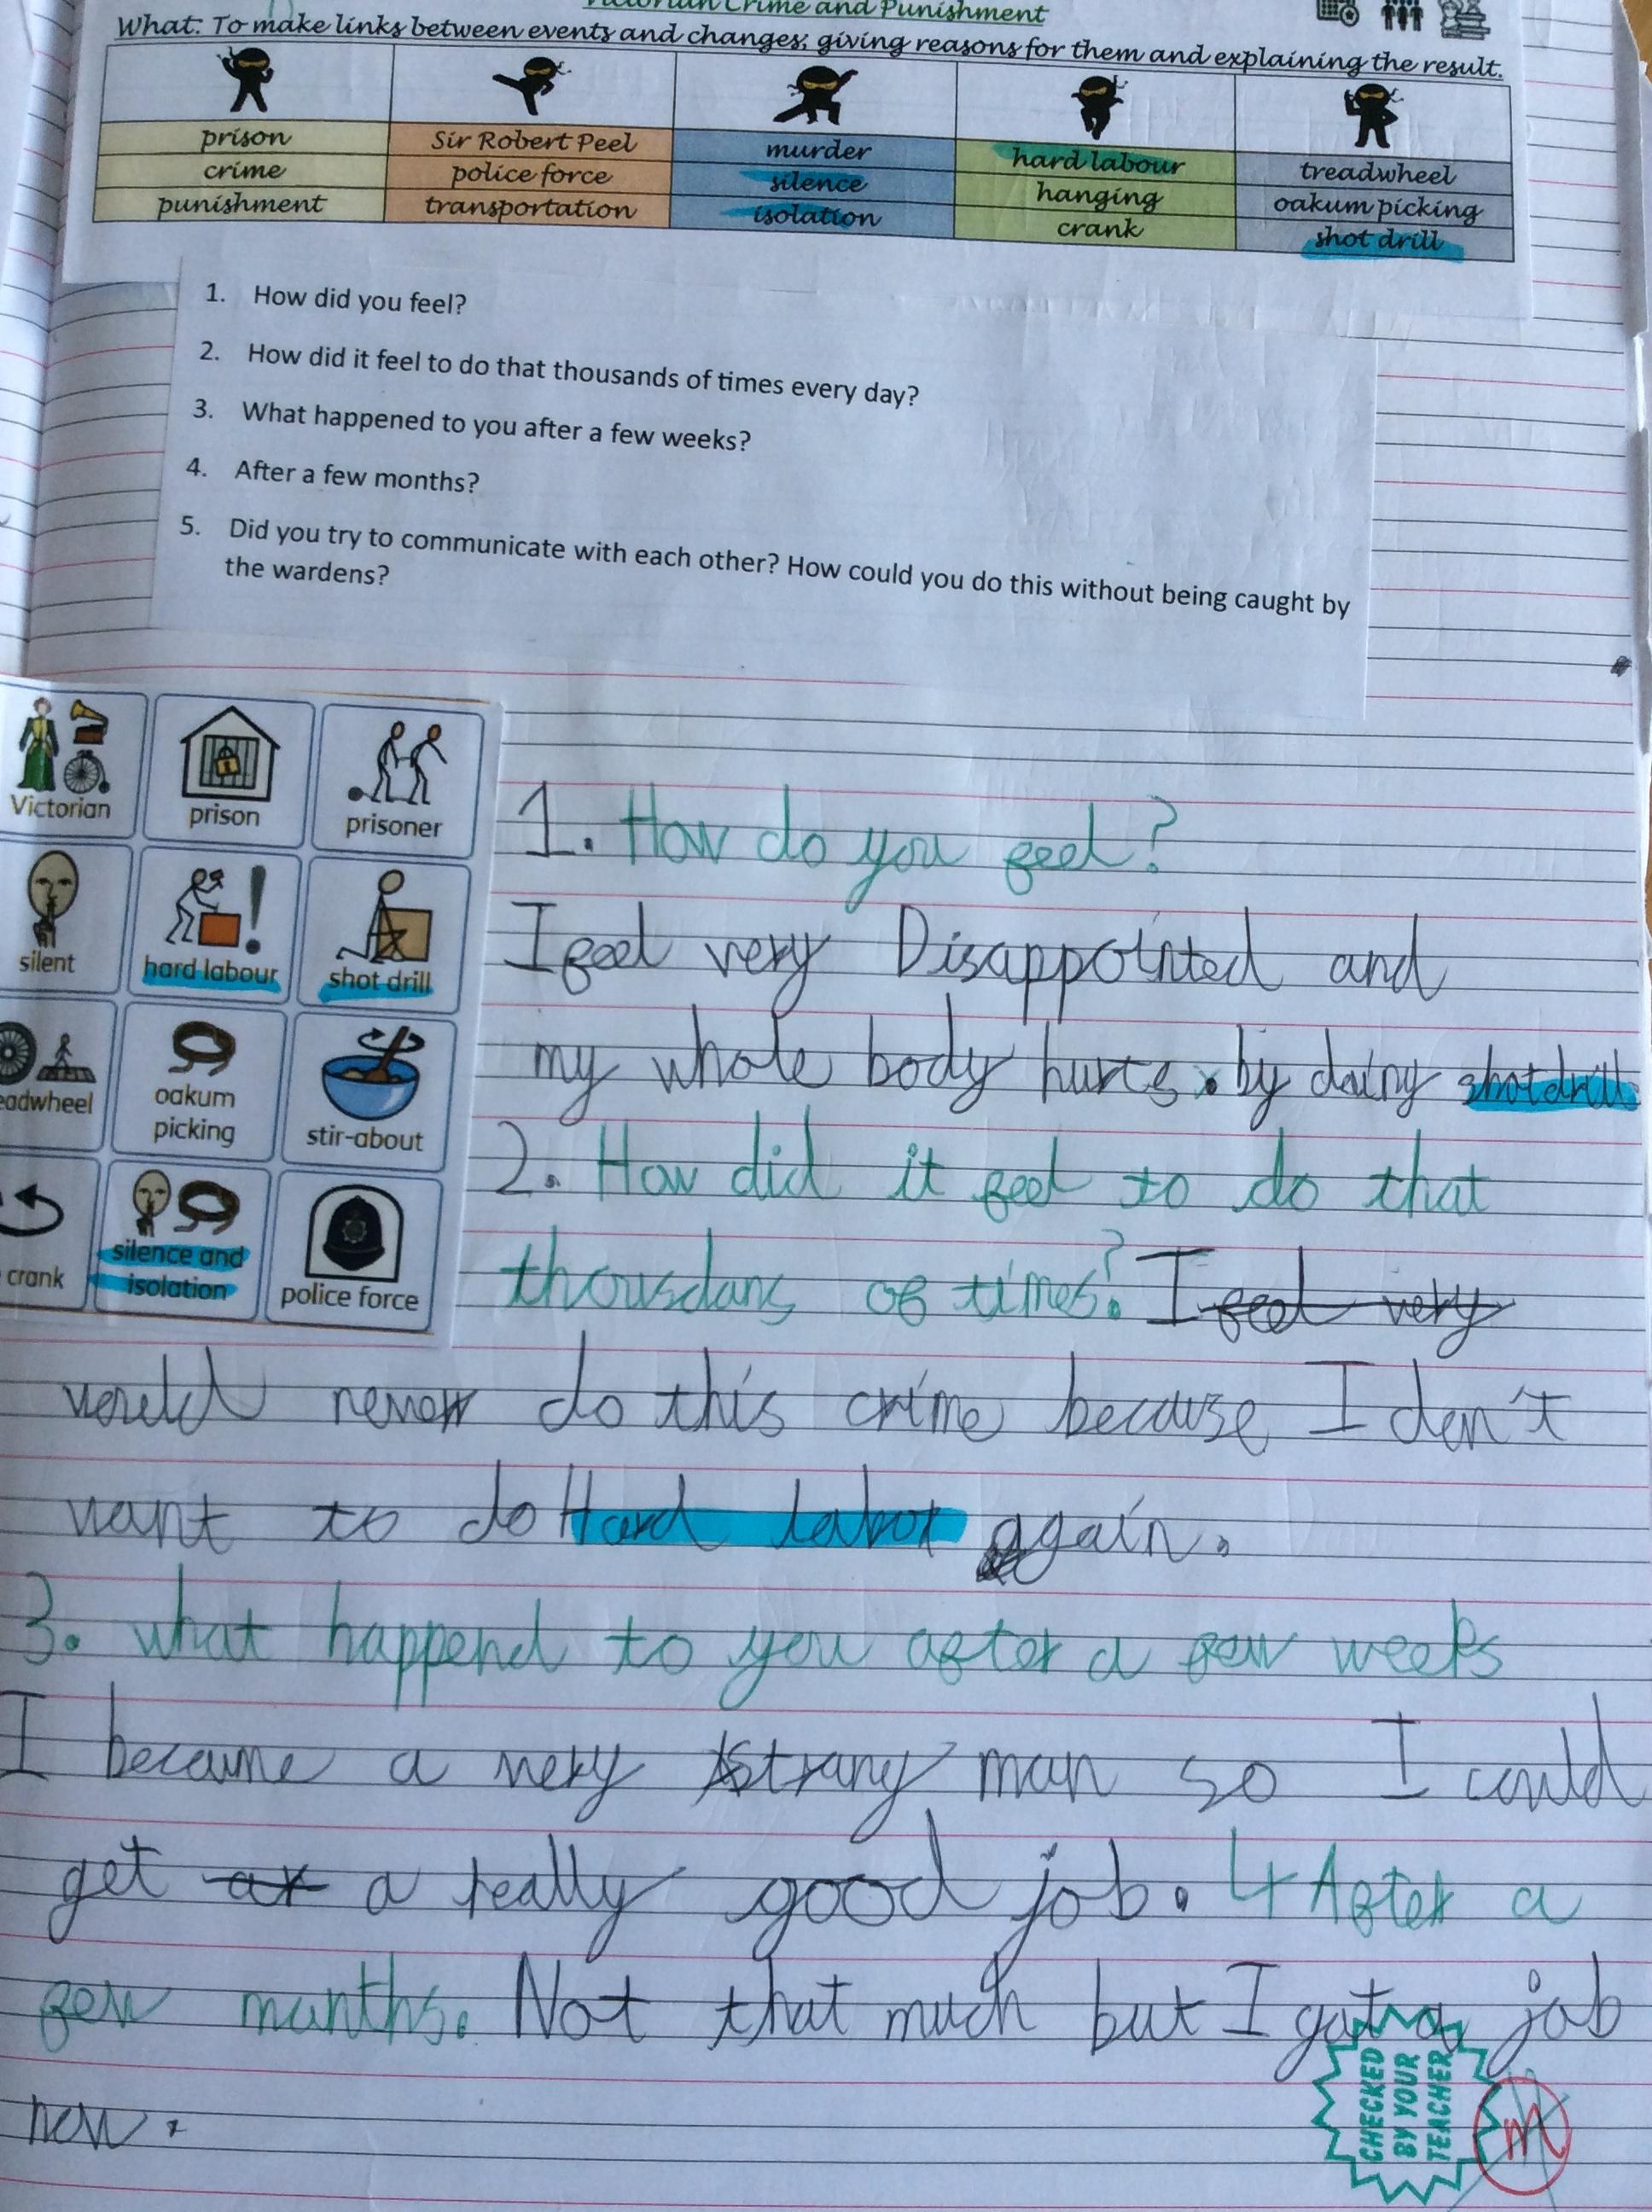 Victorian Crime and Punishment
What: To make links between events and changes, giving reasons for them and explaining the result.
prison
crime
punishment
Sir Robert Peel
police force
transportation
murder
silence
isolation
hard labour
hanging
crank
treadwheel
oakum picking
shot drill
1. How did you feel?
2. How did it feel to do that thousands of times every day?
3. What happened to you after a few weeks?
4. After a few months?
5. Did you try to communicate with each other? How could you do this without being caught by
the wardens?
Victorian
prison
prisoner
silent
hard labour
shot drill
eadwheel
oakum
picking
stir-about
crank
silence and
isolation
police force
1. How do you feel?
I feel very Disappointed and
my whole body hurts. by doing shotdrill
2. How did it feel to do that
thousdans of times? I feel very
would never do this crime because I don't
want to do Hard labor again.
3. what happend to you after a few weeks
I became a very strong man so I could
get ar a really good job. 4 After a
few munths. Not that much but I got a job
now.
CHECKED
BY YOUR
TEACHER
M